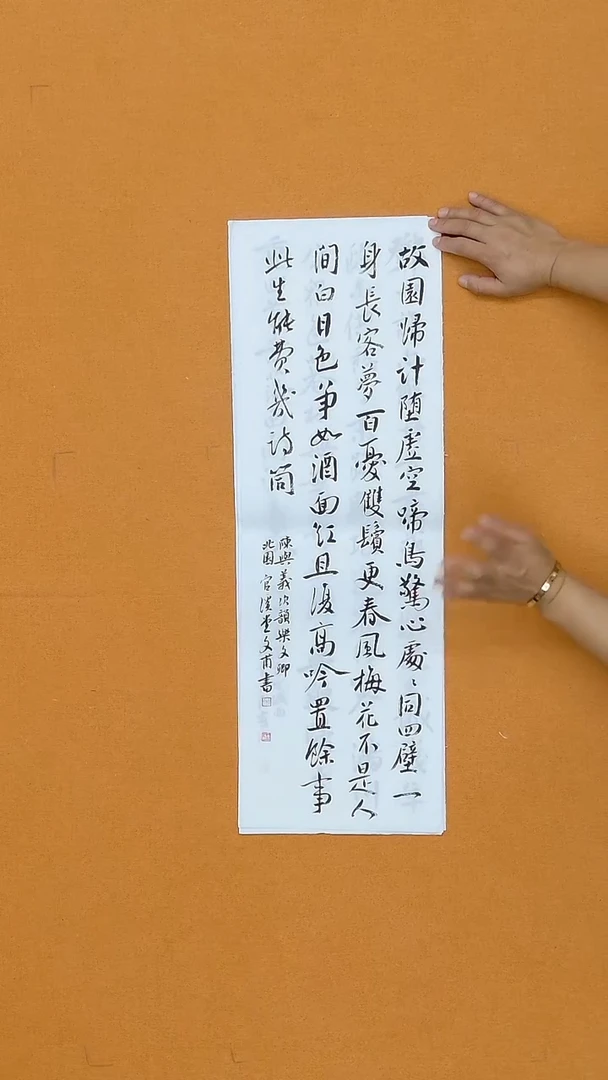 故園歸計堕虛空啼鳥驚心處〻同四壁一
身長客夢百憂雙鬢更春風梅花不是人
間白日色爭如酒面紅且復高吟置餘事
此生能費幾詩筒
陳與義次韻樂文卿
北園 文甫書